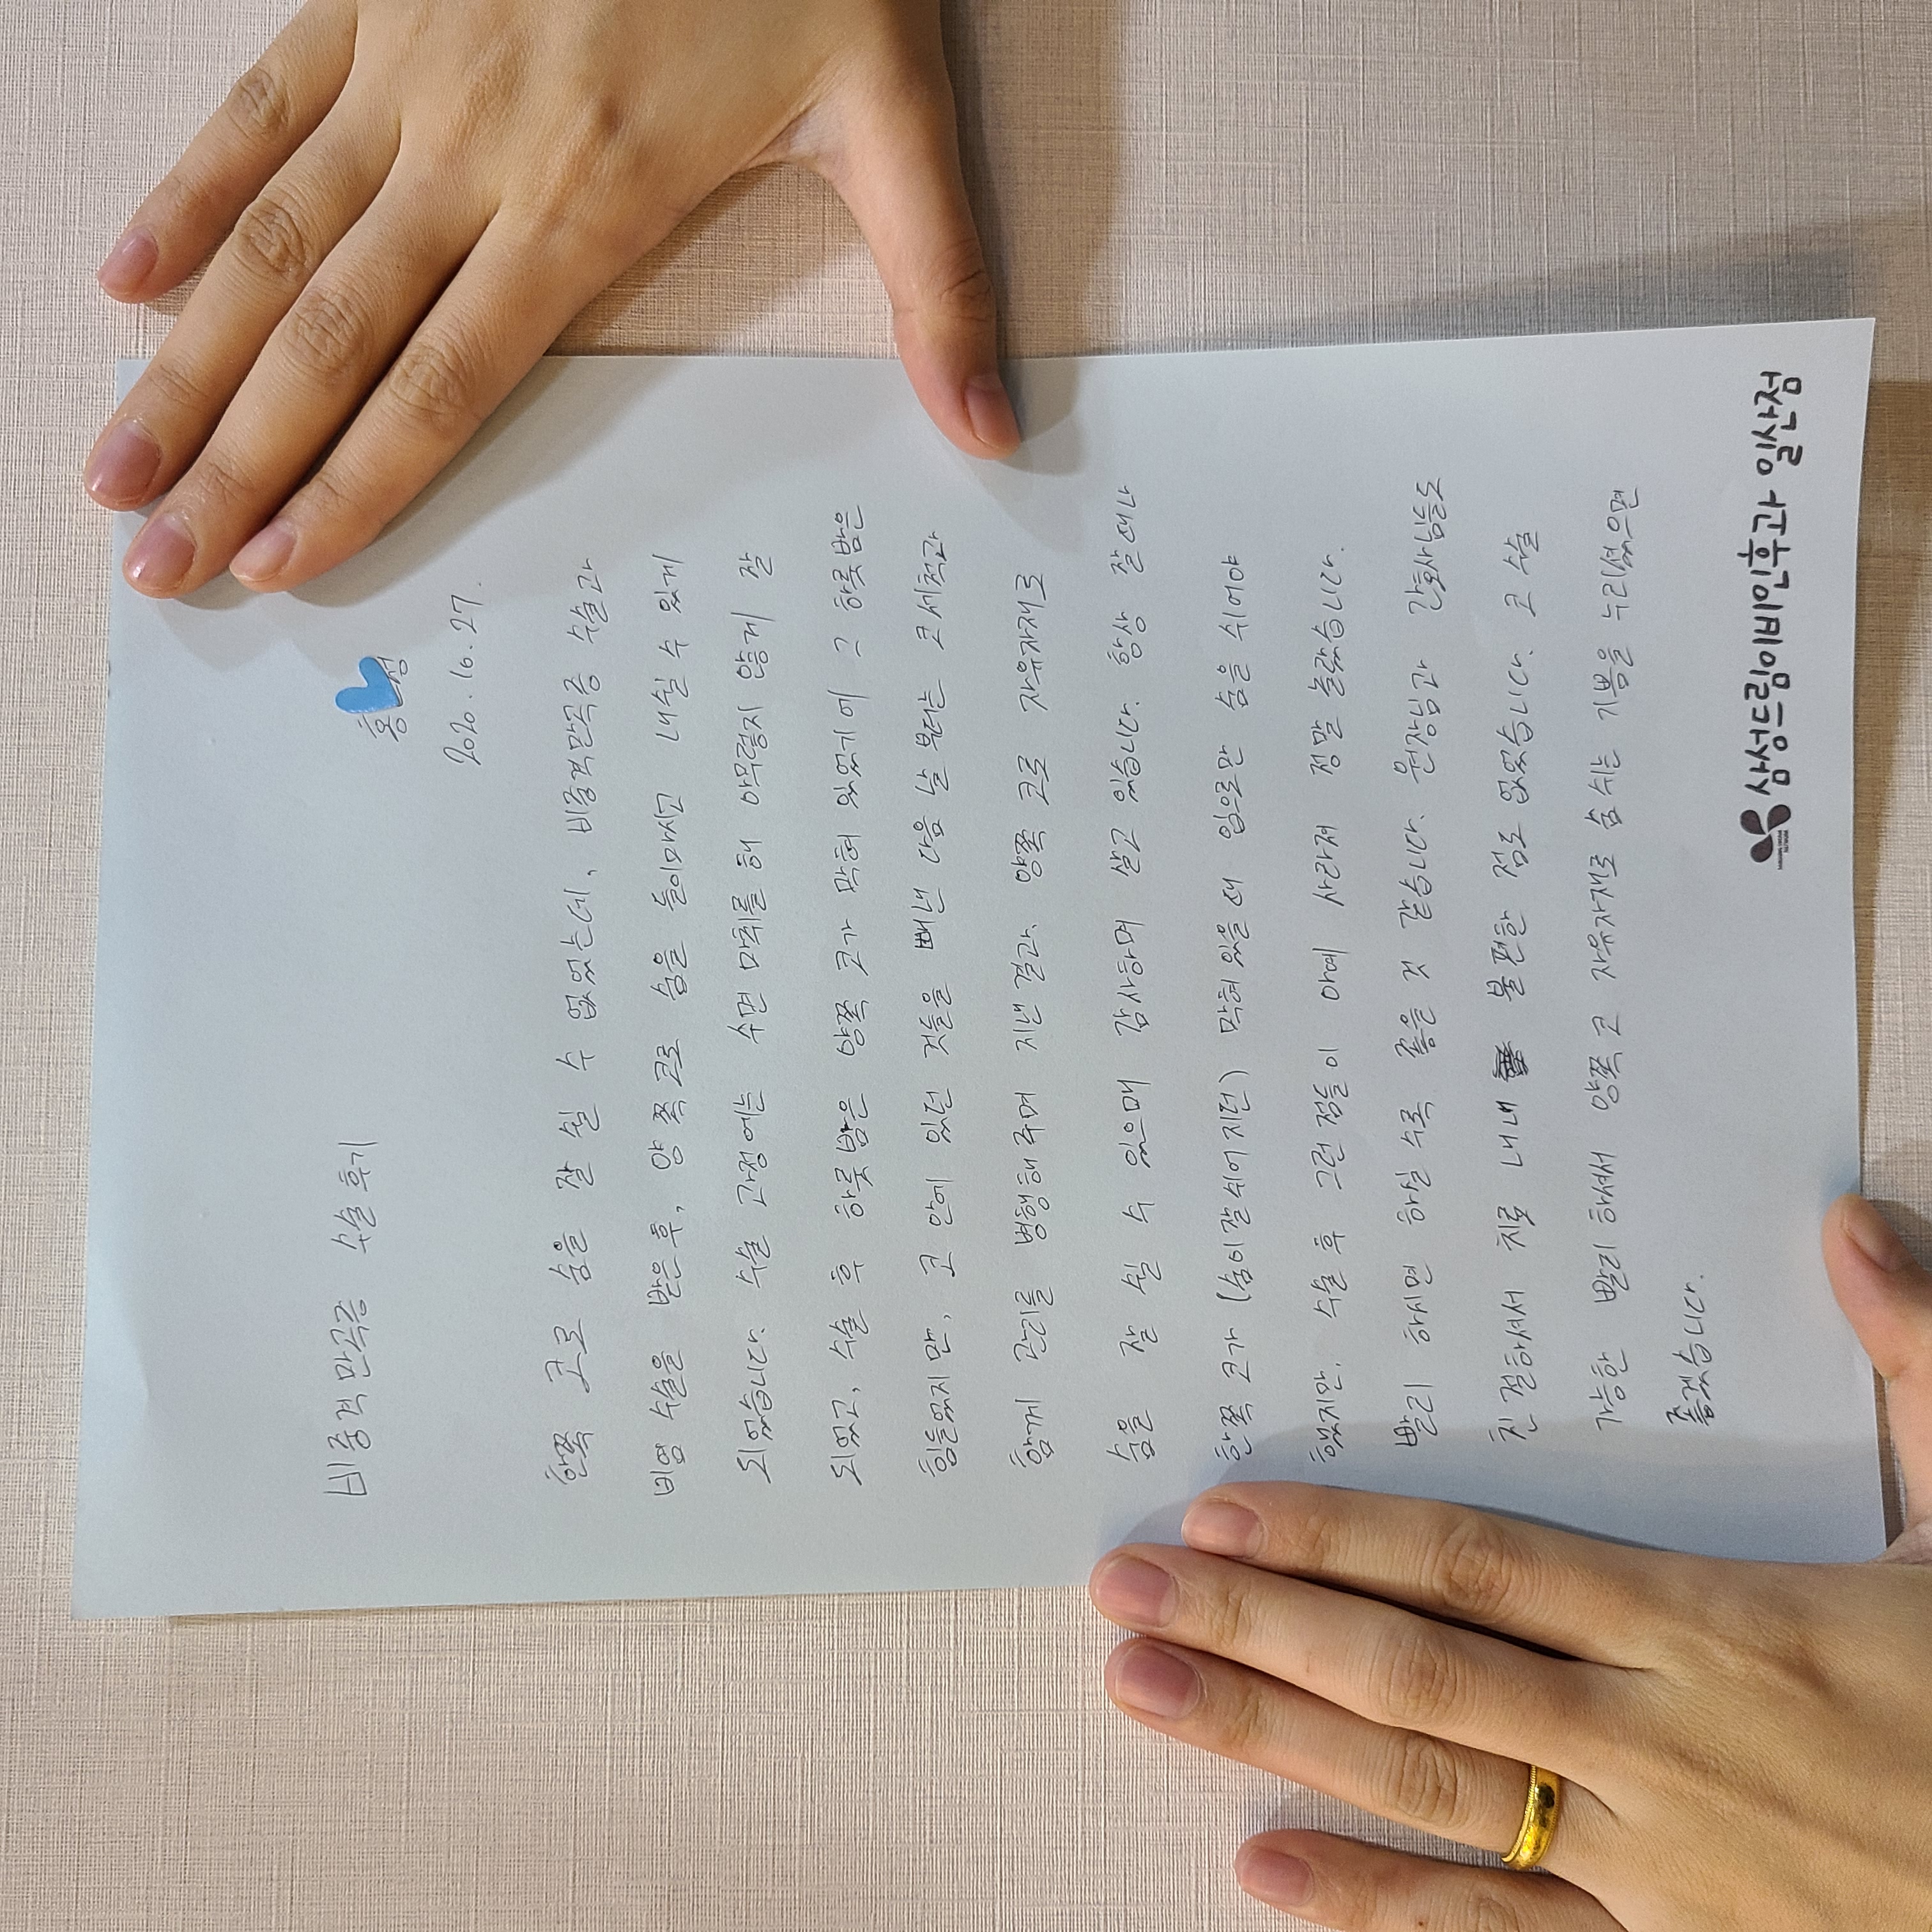 비중격만곡증 수술 후기
홍 성
2020. 10. 27.
한쪽 코로 숨을 잘 쉴 수 없었는데, 비중격만곡증 수술과
비염 수술을 받은 후, 양 쪽 코로 숨을 들이마시고 내쉴 수 있게
되었습니다. 수술 과정에는 수면 마취를 해 아무렇지 않게 잘
되었고, 수술 후 하룻밤은 양쪽 코가 막혀 있었기에 그 하룻밤은
힘들었지만, 코 안에 있던 것들을 빼낸 다음 날 부터는 코세척과
함께 관리를 병행해주며 지낸 결과, 양쪽 코로 자유자재로
숨을 잘 쉴 수 있으매 감사하며 살고 있습니다. 항상 잘 때나
한쪽 코가 (숨이 잘 쉬어지던) 막혀있을 때 입으로만 숨을 쉬어야
했지만, 수술 후 그런 점들이 아예 사라져 정말 놀랐습니다.
빨리 하시면 하실 수록 좋을 것 같습니다. 원장님과 간호사님들도
친절하셔서 치료 내내 불편한 점도 없었습니다. 코 수술
가능한 빨리 하셔서 양쪽 코 자유자재로 숨 쉬는 기쁨을 누리셨으면
좋겠습니다.
사상과림이비인후과 이전상곤몸